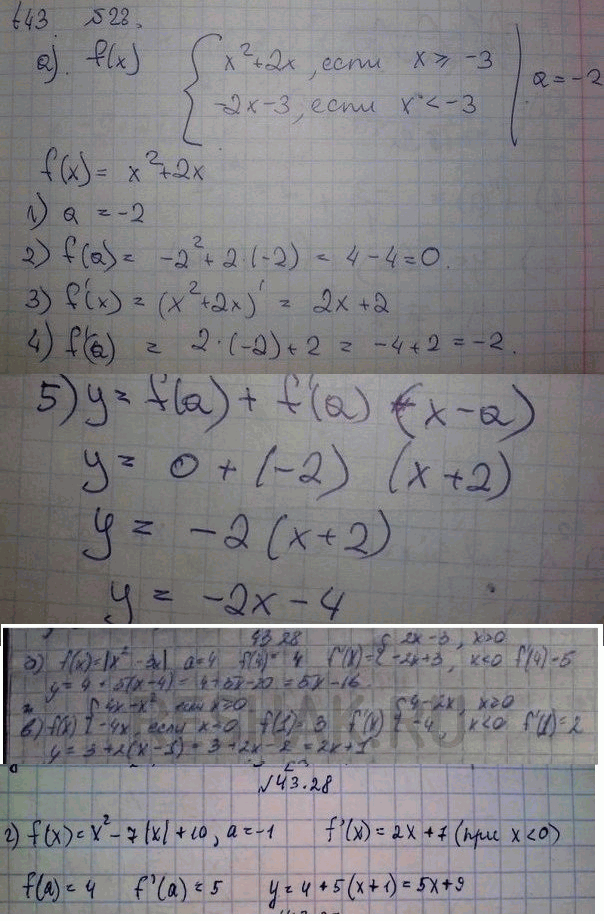 t43 №28.
а). f(x) { x²+2x, если x ≥ -3 | a = -2
-2x-3, если x < -3
f(x) = x²+2x
1) a = -2
2) f(a) = -2²+2·(-2) = 4-4=0.
3) f'(x) = (x²+2x)' = 2x+2
4) f'(a) = 2·(-2)+2 = -4+2 = -2.
5) y = f(a) + f'(a) (x-a)
y = 0 + (-2) (x+2)
y = -2(x+2)
y = -2x-4
43.28
f(x)=|x²-3x| a=4 f(4)=4 f'(x)={ 2x-3, x>0
-2x+3, x<0 f'(4)=5
y=4+5(x-4)=4+5x-20=5x-16.
в) f(x) { 4x-x², если x≥0
-4x, если x<0 f(1)=3 f'(x) { 4-2x, x≥0
-4, x<0 f'(1)=2
y=3+2(x-1)=3+2x-2=2x+1
№43.28
г) f(x)=x²-7|x|+10, a=-1 f'(x)=2x+7 (при x<0)
f(a)=4 f'(a)=5 y=4+5(x+1)=5x+9